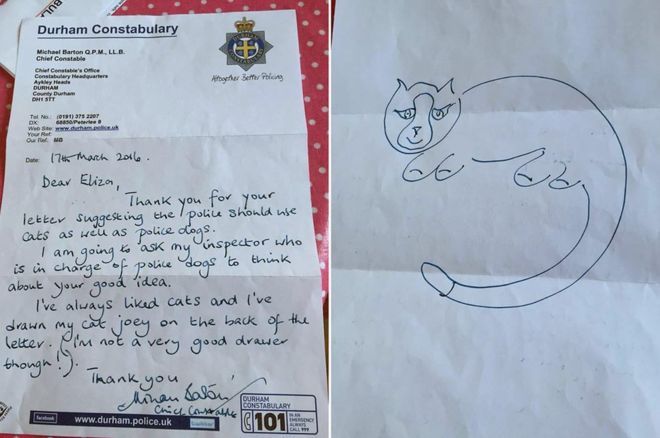 Durham Constabulary
Michael Barton Q.P.M., LL.B.
Chief Constable
Altogether Better Policing
Chief Constable's Office
Constabulary Headquarters
Aykley Heads
DURHAM
County Durham
DH1 5TT
Tel. No.: (0191) 375 2207
DX: 68850/Peterlee 9
Web Site: www.durham.police.uk
Your Ref:
Our Ref: MB
Date: 17th March 2016.
Dear Eliza,
Thank you for your
letter suggesting the police should use
cats as well as police dogs.
I am going to ask my inspector who
is in charge of police dogs to think
about your good idea.
I've always liked cats and I've
drawn my cat joey on the back of the
letter. (I'm not a very good drawer
though!).
Thank you
Michael Barton
Chief Constable
facebook www.durham.police.uk twitter
DURHAM
CONSTABULARY
101
IN AN
EMERGENCY
ALWAYS
CALL 999